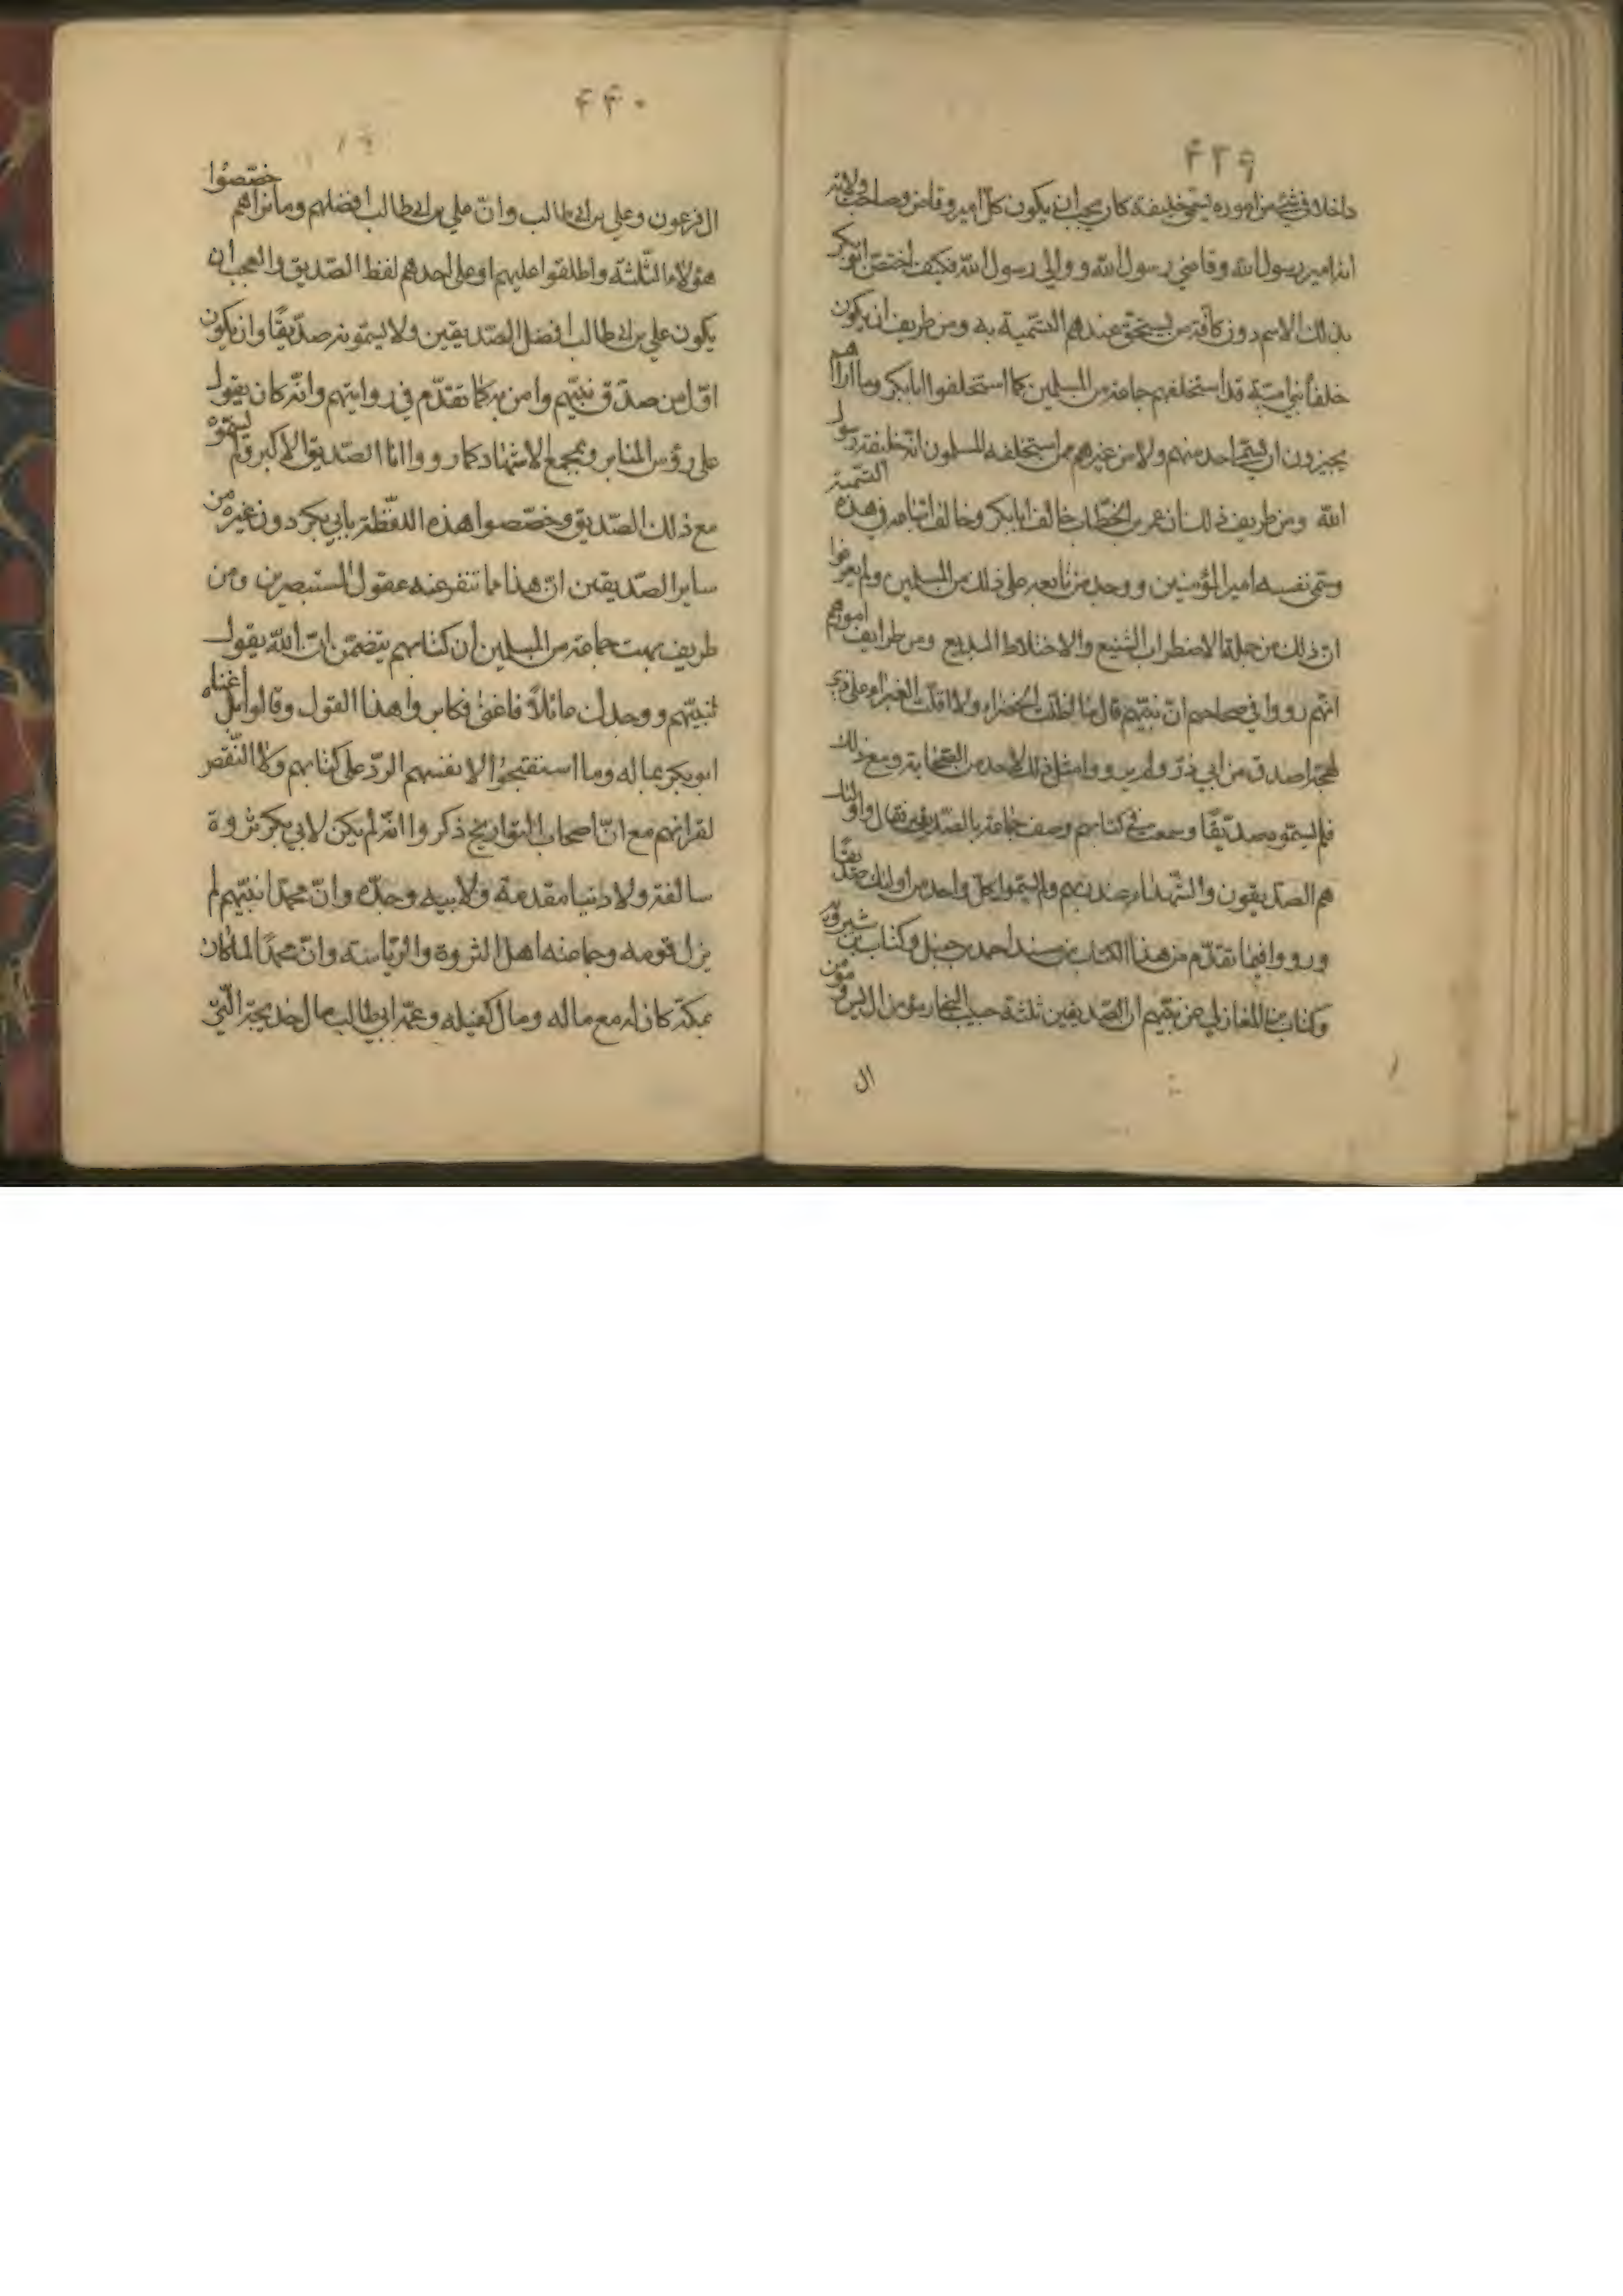 ۴۳۹
داخلا في شئ من اموره يسمى خليفة كان يجب ان يكون كل امير وقاض وصاحب ولاية
انه امير رسول الله وقاضي رسول الله ووالي رسول الله فكيف اختص ابوبكر
بذلك الاسم دون كافة من يستحق عندهم التسمية به ومن طريف ان يكون
خلفاء بني امية قد استخلفهم جماعة من المسلمين كما استخلفوا ابابكر وما اراهم
يجيزون ان يسمى احد منهم ولا من غيرهم ممن استخلفه المسلمون انه خليفة رسول
الله ومن طريف ذلك ان عمر بن الخطاب خالف ابابكر وخالف اتباعه في هذه التسمية
وسمى نفسه امير المؤمنين ووجد من تابعه على ذلك من المسلمين ولم يعرفوا
ان ذلك من جملة الاضطراب الشنيع والاختلاط البديع ومن طرايف امورهم
انهم رووا في صحاحهم ان نبيهم قال ما اظلت الخضراء ولا اقلت الغبراء على ذي
لهجة اصدق من ابي ذر ولم يرووا مثل ذلك لاحد من الصحابة ومع ذلك
فلم يسموه صديقا وسمعت في كتابهم وصف جماعة بالصديقين فقال واولئك
هم الصديقون والشهداء عند ربهم ولم يسموا كل واحد من اولئك صديقا
ورووا فيما تقدم من هذا الكتاب من مسند احمد بن حنبل وكتاب بن شيرويه
وكتاب بن المغازلي عن نبيهم ان الصديقين ثلثة حبيب النجار مؤمن ال يس ومؤمن
ال
۴۴۰
ال فرعون وعلي بن ابي طالب وان علي بن ابي طالب افضلهم وما نراهم خصصوا
هؤلاء الثلثة واطلقوا عليهم او على احدهم لفظ الصديق والعجب ان
يكون علي بن ابي طالب افضل الصديقين ولا يسمونه صديقا وان يكون
اول من صدق نبيهم وامن به كما تقدم في روايتهم وانه كان يقول
على رؤس المنابر وبمجمع الاشهاد كما رووا انا الصديق الاكبر ولم يسموه
مع ذلك الصديق وخصصوا هذه اللفظة بابي بكر دون غيره من
ساير الصديقين ان هذا مما تنفر عنه عقول المستبصرين ومن
طريف بهت جماعة من المسلمين ان كتابهم يتضمن ان الله يقول
لنبيهم ووجدك عائلا فاغنى فكابروا هذا القول وقالوا بل اغناه
ابو بكر بماله وما استقبحوا لانفسهم الرد على كتابهم ولا النقص
لقرانهم مع ان اصحاب التواريخ ذكروا انه لم يكن لابي بكر ثروة
سالفة ولا دنيا مقدمة ولا لابيه وجده وان محمدا نبيهم لم
يزل قومه وجماعته اهل الثروة والرياسة وان محمدا لما كان
بمكة كان له مع ماله ومال كفيله وعمه ابي طالب مال خديجة التي